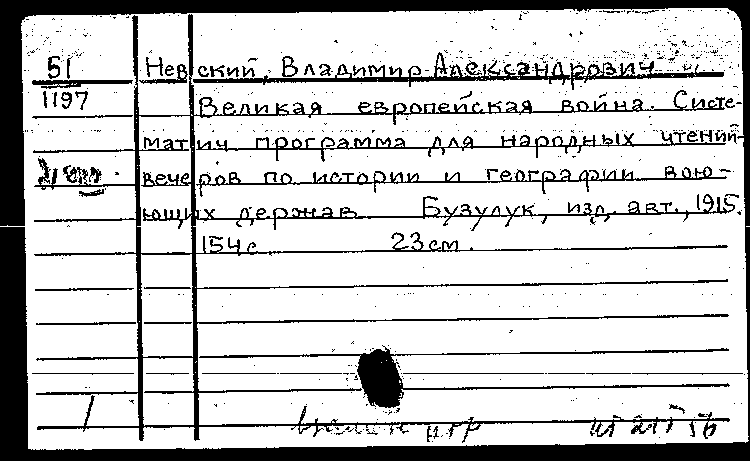 51
1197
Невский, Владимир Александрович
Великая европейская война. Систе-
матич. программа для народных чтений-
вечеров по истории и географии вою-
ющих держав Бузулук, изд. авт., 1915.
154с. 23см.